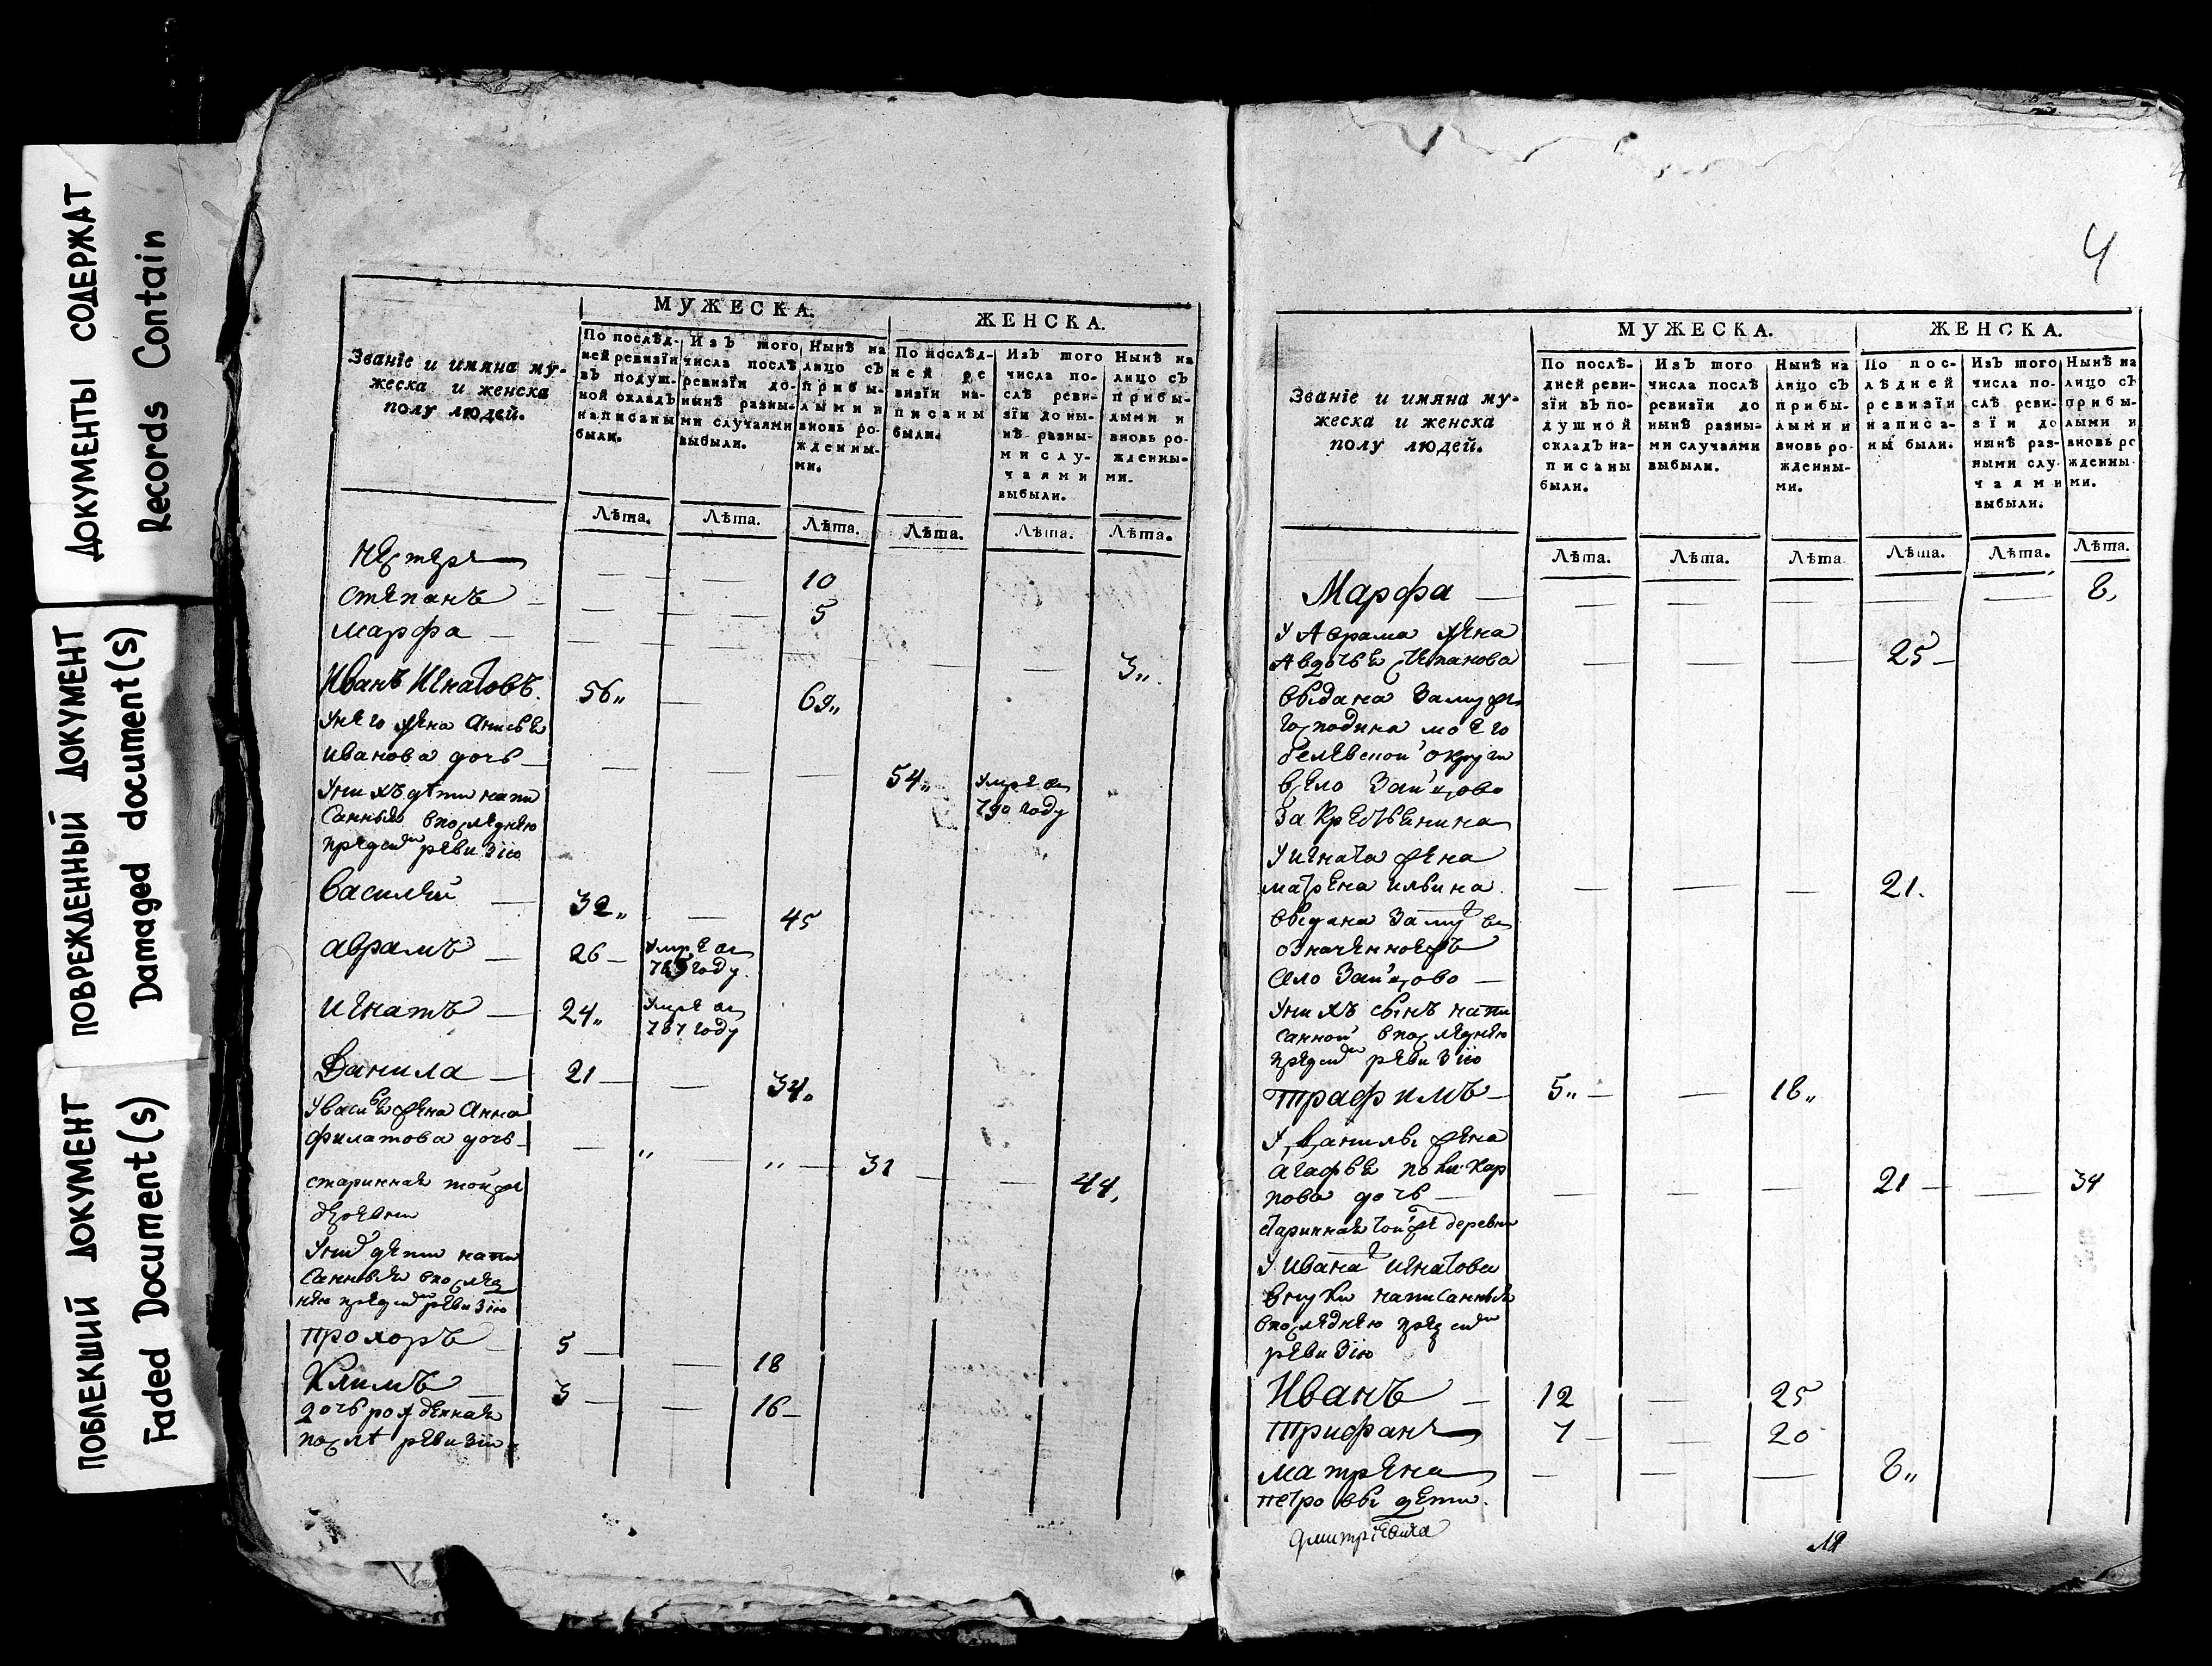 ДОКУМЕНТЫ СОДЕРЖАТ
Records Contain
ПОВРЕЖДЕННЫЙ ДОКУМЕНТ
Damaged document(s)
ПОБЛЕКШИЙ ДОКУМЕНТ
Faded Document(s)
МУЖЕСКА.
ЖЕНСКА.
Званїе и имяна му-
жеска и женска
полу людей.
По послѣд-
ней ревизїи
въ подуш-
ной окладъ
написаны
были.
Изъ того
числа послѣ
ревизїи до-
нынѣ разны-
ми случаями
выбыли.
Нынѣ на
лицо съ
прибы-
лыми и
вновь ро-
жденны-
ми.
По послѣд-
ней ре
визїи на-
писаны
были.
Изъ того
числа по-
слѣ реви-
зїи до ны-
нѣ разны-
ми слу-
чаями
выбыли.
Нынѣ на
лицо съ
прибы-
лыми и
вновь ро-
жденны-
ми.
Лѣта. Лѣта. Лѣта. Лѣта. Лѣта. Лѣта.
Нестеръ — — 10
Степанъ — — — 5
Марфа — — — — — — 3„
Иванъ Игнатовъ. 56„ — 69„
Унего жена Анисья
Иванова дочь — — — — 54„ Умре въ
790 году
Унихъ дети напи
санныя впоследнею
предъ сим ревизiю
Василей — 32„ — 45
Аврамъ — 26 — Умре въ
785 году.
Игнатъ — 24„ Умре въ
787 году
Данила — 21 — — 34„
Увасилья жена Анна
Филатова дочь — — „ — „ — 31 — — 44,
старинная той же
деревни
Уних дети напи
санныя впослед
нею предъ сим ревизiю
Прохоръ — 5 — — 18
Климъ — 3 — — 16 —
дочь рожденная
послѣ ревизiи
4
МУЖЕСКА.
ЖЕНСКА.
Званїе и имяна му-
жеска и женска
полу людей.
По послѣ-
дней реви-
зїи въ по-
душной
окладъ на-
писаны
были.
Изъ того
числа послѣ
ревизїи до
нынѣ разны-
ми случаями
выбыли.
Нынѣ на
лицо съ
прибы-
лыми и
вновь ро-
жденны-
ми.
По пос-
лѣдней
ревизїи
написа-
ны были.
Изъ того
числа по-
слѣ реви-
зїи до
нынѣ раз-
ными слу-
чаями
выбыли.
Нынѣ на
лицо съ
прибы-
лыми и
вновь ро
жденны-
ми.
Лѣта. Лѣта. Лѣта Лѣта. Лѣта. Лѣта.
Марфа — — — — — — 8,
У Аврама жена
Авдотья Степанова — — — 25 —
выдана замужъ
господина моего
белевской округи
всело Зайцово
за крестьянина
У игната жена
матрена ильина. — — — 21.
выдана замуж въ
означенноежъ
село Зайцово —
Унихъ сынъ напи
санной впоследнею
предъ сим ревизiю
Трафимъ — 5„ — — 18„
У Данилы жена
Агафья поликар
пова дочь — — — — 21 — — 34
старинная той же деревни
У Ивана Игнатова
внуки написанныя
впоследнею предъ сим
ревизiю
Иванъ — 12 — 25
Трифанъ 7 — — 20
матрена — — — 8„
петровы дети.
Дмитрiевича